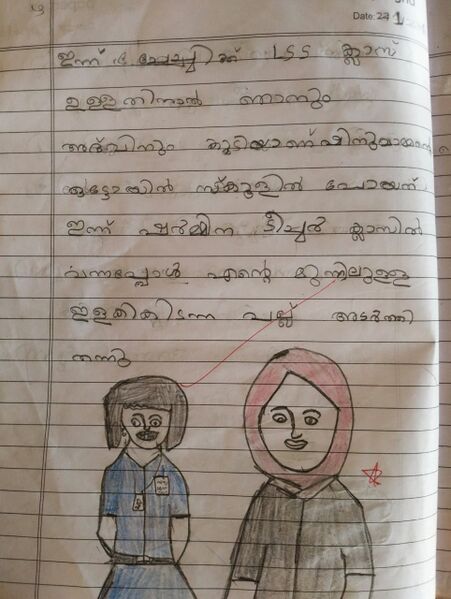 Date: 22 1
ഇന്ന് ചേച്ചിക്ക് LSS ക്ലാസ്
ഉള്ളതിനാൽ ഞാനും
അശ്വിനും കൂടിയാണ് ഷിനുമാമന്റെ
ഓട്ടോയിൽ സ്കൂളിൽ പോയത്
ഇന്ന് ഷർമിന ടീച്ചർ ക്ലാസിൽ
വന്നപ്പോൾ എന്റെ മുന്നിലുള്ള
ഇളകികിടന്ന പല്ല് അടർത്തി
തന്നു